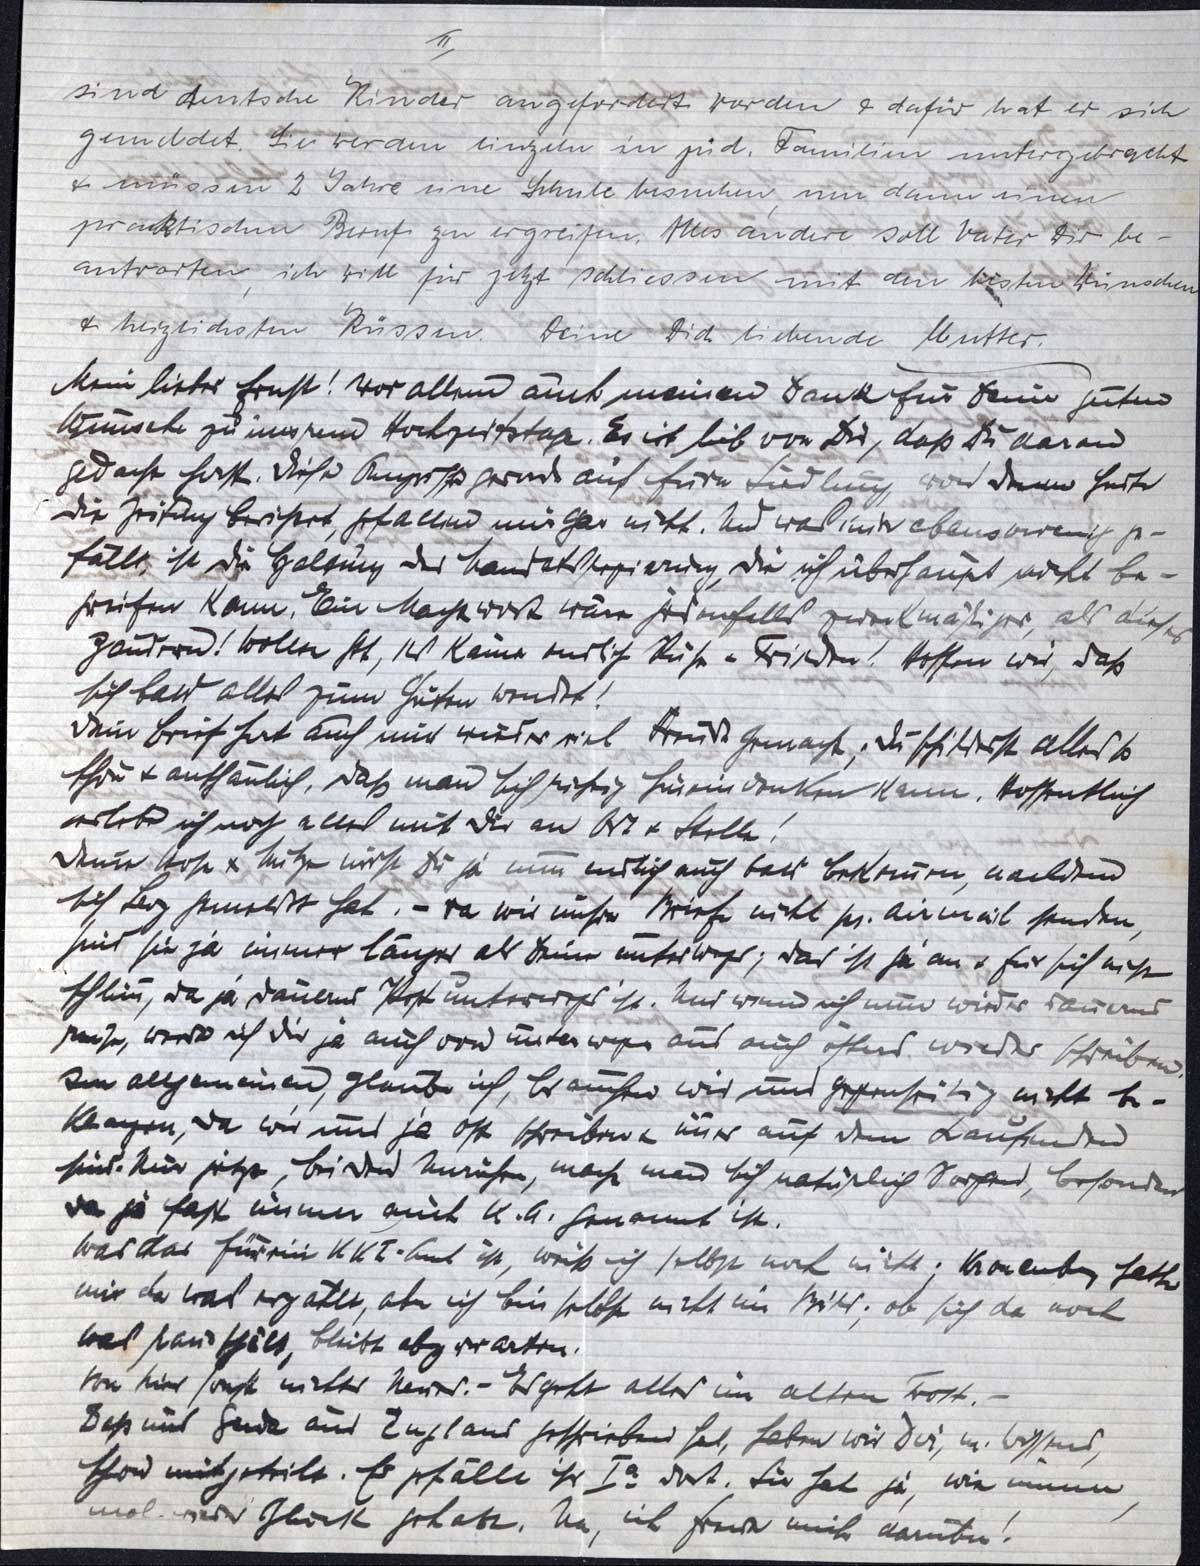 II,
sind deutsche Kinder angefordert worden & dafür hat er sich
gemeldet. Sie werden einzeln in jüd. Familien untergebracht
& müssen 2 Jahre eine Schule besuchen, um dann einen
praktischen Beruf zu ergreifen. Alles andere soll Vater Dir be-
antworten, ich will für jetzt schliessen mit den besten Wünschen
& herzlichsten Küssen. Deine Dich liebende Mutter.
Mein lieber Ernst! Vor allem auch meinen Dank für Deine guten
Wünsche zu unserem Hochzeitstage. Es ist lieb von Dir, daß Du daran
gedacht hast. Diese Angriffe gerade auf Eure Siedlung, von denen heute
die Zeitung berichtet, gefallen mir gar nicht. Und was mir ebensowenig ge-
fällt, ist die Haltung der Mandatsregierung, die ich überhaupt nicht be-
greifen kann. Ein Machtwort wäre jedenfalls zweckmäßiger, als dieses
Zaudern! Wolle Gtt, es käme endlich Ruhe u. Frieden! Hoffen wir, daß
sich bald alles zum Guten wendet!
Dein Brief hat auch mir wieder viel Freude gemacht; Du schilderst alles so
schön & anschaulich, daß man sich richtig hineindenken kann. Hoffentlich
erlebe ich noch alles mit Dir an Ort & Stelle!
Deine Hose & Mütze wirst Du ja nun endlich auch bald bekommen, nachdem
sich Levy gemeldet hat. - Da wir unsere Briefe nicht per airmail senden,
sind sie ja immer länger als Deine unterwegs; das ist ja an & für sich nicht
schlimm, da ja dauernd Post unterwegs ist. Und wenn ich nun wieder dauernd
reise, werde ich Dir ja auch von unterwegs aus auch öfters wieder schreiben.
Im allgemeinen, glaube ich, brauchen wir uns gegenseitig nicht be-
klagen, da wir uns ja oft schreiben & immer auf dem Laufenden
sind. Nur jetzt, bei den Unruhen, macht man sich natürlich Sorgen, besonders
da ja fast immer auch K.A. genannt ist.
Was das für ein KKL-Amt ist, weiß ich selbst noch nicht; Kronenberg hatte
mir da was erzählt, aber ich bin selbst nicht im Bild; ob sich da noch
was rausschält, bleibt abzuwarten.
Von hier sonst nichts Neues. - Es geht alles im alten Trott. -
Daß uns Gerda aus England geschrieben hat, haben wir Dir, m. Wissens,
schon mitgeteilt. Es gefällt ihr Ia dort. Sie hat ja, wie immer,
mal wieder Glück gehabt. Na, ich freue mich darüber!